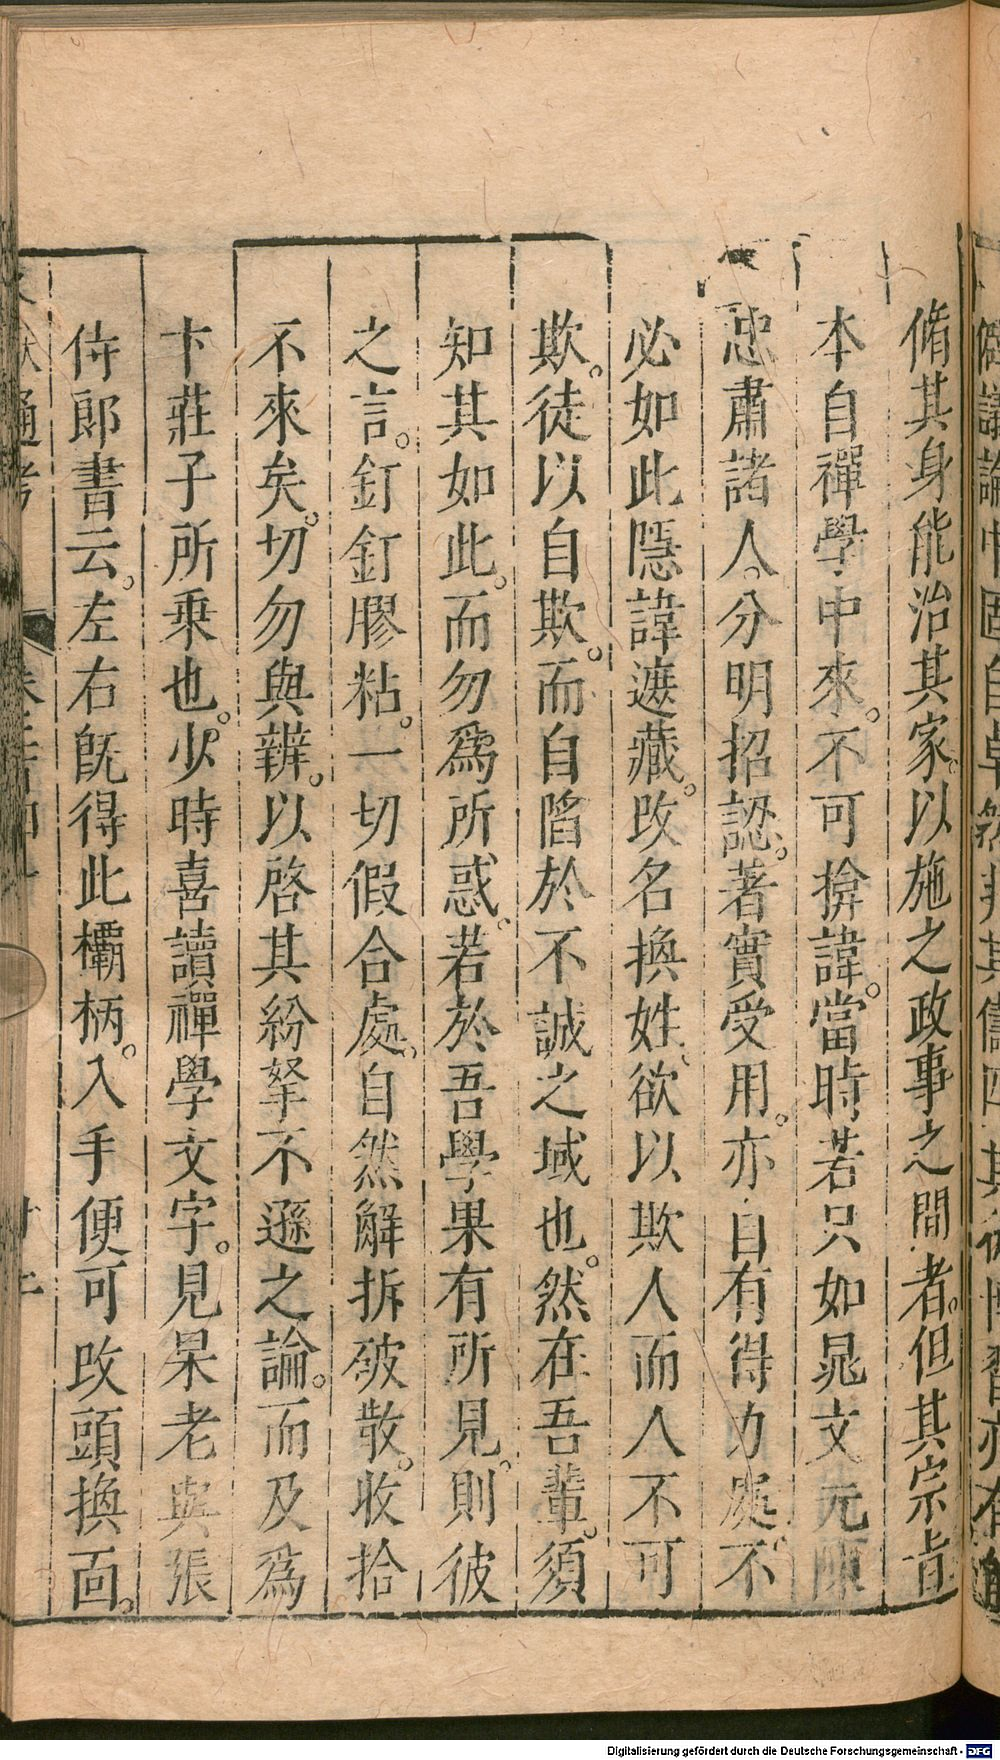 脩其身能治其家。以施之政事之間者。但其宗旨
本自禪學中來。不可揜諱。當時若只如晁文元陳
忠肅諸人。分明招認。著實受用。亦自有得力處。不
必如此隱諱遮藏。改名換姓、欲以欺人而人不可
欺。徒以自欺。而自陷於不誠之域也。然在吾輩。須
知其如此。而勿爲所惑。若於吾學果有所見。則彼
之言。釘釘膠粘。一切假合處。自然解拆破散。收拾
不來矣。切勿與辨。以啓其紛拏不遜之論。而及爲
卞莊子所乗也。少時喜讀禪學文字。見杲老與張
侍郎書云。左右旣得此欛柄。入手便可改頭換面。
通考
Digitalisierung gefördert durch die Deutsche Forschungsgemeinschaft - DFG